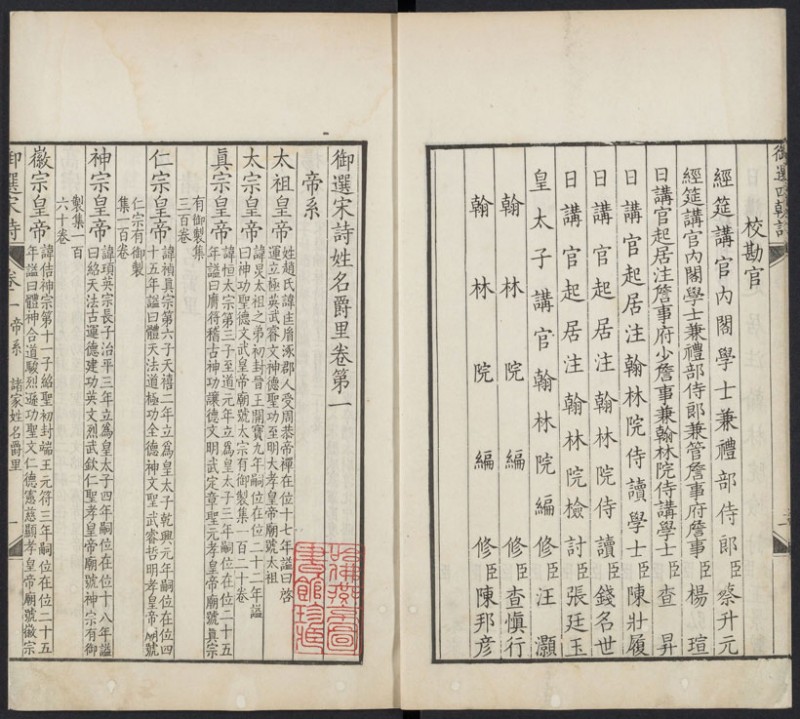 御選四朝詩
校勘官
經筵講官內閣學士兼禮部侍郎臣蔡升元
經筵講官內閣學士兼禮部侍郎兼管詹事府詹事臣楊瑄
日講官起居注詹事府少詹事兼翰林院侍講學士臣查昇
日講官起居注翰林院侍讀學士臣陳壯履
日講官起居注翰林院侍讀臣錢名世
日講官起居注翰林院檢討臣張廷玉
皇太子講官翰林院編修臣汪灝
翰林院編修臣查慎行
翰林院編修臣陳邦彥
御選宋詩姓名爵里卷第一
帝系
太祖皇帝
姓趙氏諱
涿郡人受周恭帝禪在位十七年謚曰啓
運立極英武睿文神德聖功至明大孝皇帝廟號太祖
太宗皇帝
諱炅太祖之弟初封晉王開寶九年嗣位在位二十二年謚
曰神功聖德文武皇帝廟號太宗有御製集一百二十卷
真宗皇帝
諱恒太宗第三子至道元年立爲皇太子三年嗣位在位二十五
年謚曰膺符稽古神功讓德文明武定章聖元孝皇帝廟號真宗
有御製集
三百卷
仁宗皇帝
諱禎真宗第六子天禧二年立爲皇太子乾興元年嗣位在位四
十五年謚曰體天法道極功全德神文聖武睿哲明孝皇帝廟號
仁宗有御製
集一百卷
神宗皇帝
諱頊英宗長子治平三年立爲皇太子四年嗣位在位十八年謚
曰紹天法古運德建功英文烈武欽仁聖孝皇帝廟號神宗有御
製集一百
六十卷
徽宗皇帝
諱佶神宗第十一子紹聖初封端王元符三年嗣位在位二十五
年謚曰體神合道駿烈遜功聖文仁德憲慈顯孝皇帝廟號徽宗
御選宋詩
卷一帝系 諸家姓名爵里
一
哈佛燕京圖
書館珍藏